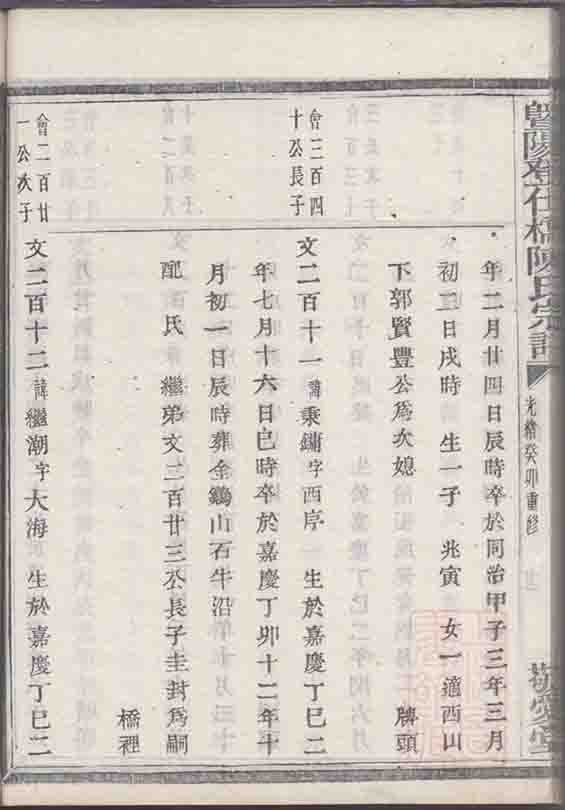 暨陽孝仕橋陳氏宗譜
光緒癸卯重修
敬愛堂
年二月廿四日辰時卒於同治甲子三年三月
初二日戌時 生一子 兆寅 女一適西山
下郭賢豐公為次媳 勝頭
會三百四十公長子
文二百十一諱秉鏞字西序 生於嘉慶丁巳二
年七月十六日巳時卒於嘉慶丁卯十二年十
月初一日辰時葬金鷄山石牛沿
配 氏 繼弟文二百廿三公長子圭封為嗣
橋裡
會二百廿一公次子
文二百十二諱繼潮字大海 生於嘉慶丁巳二